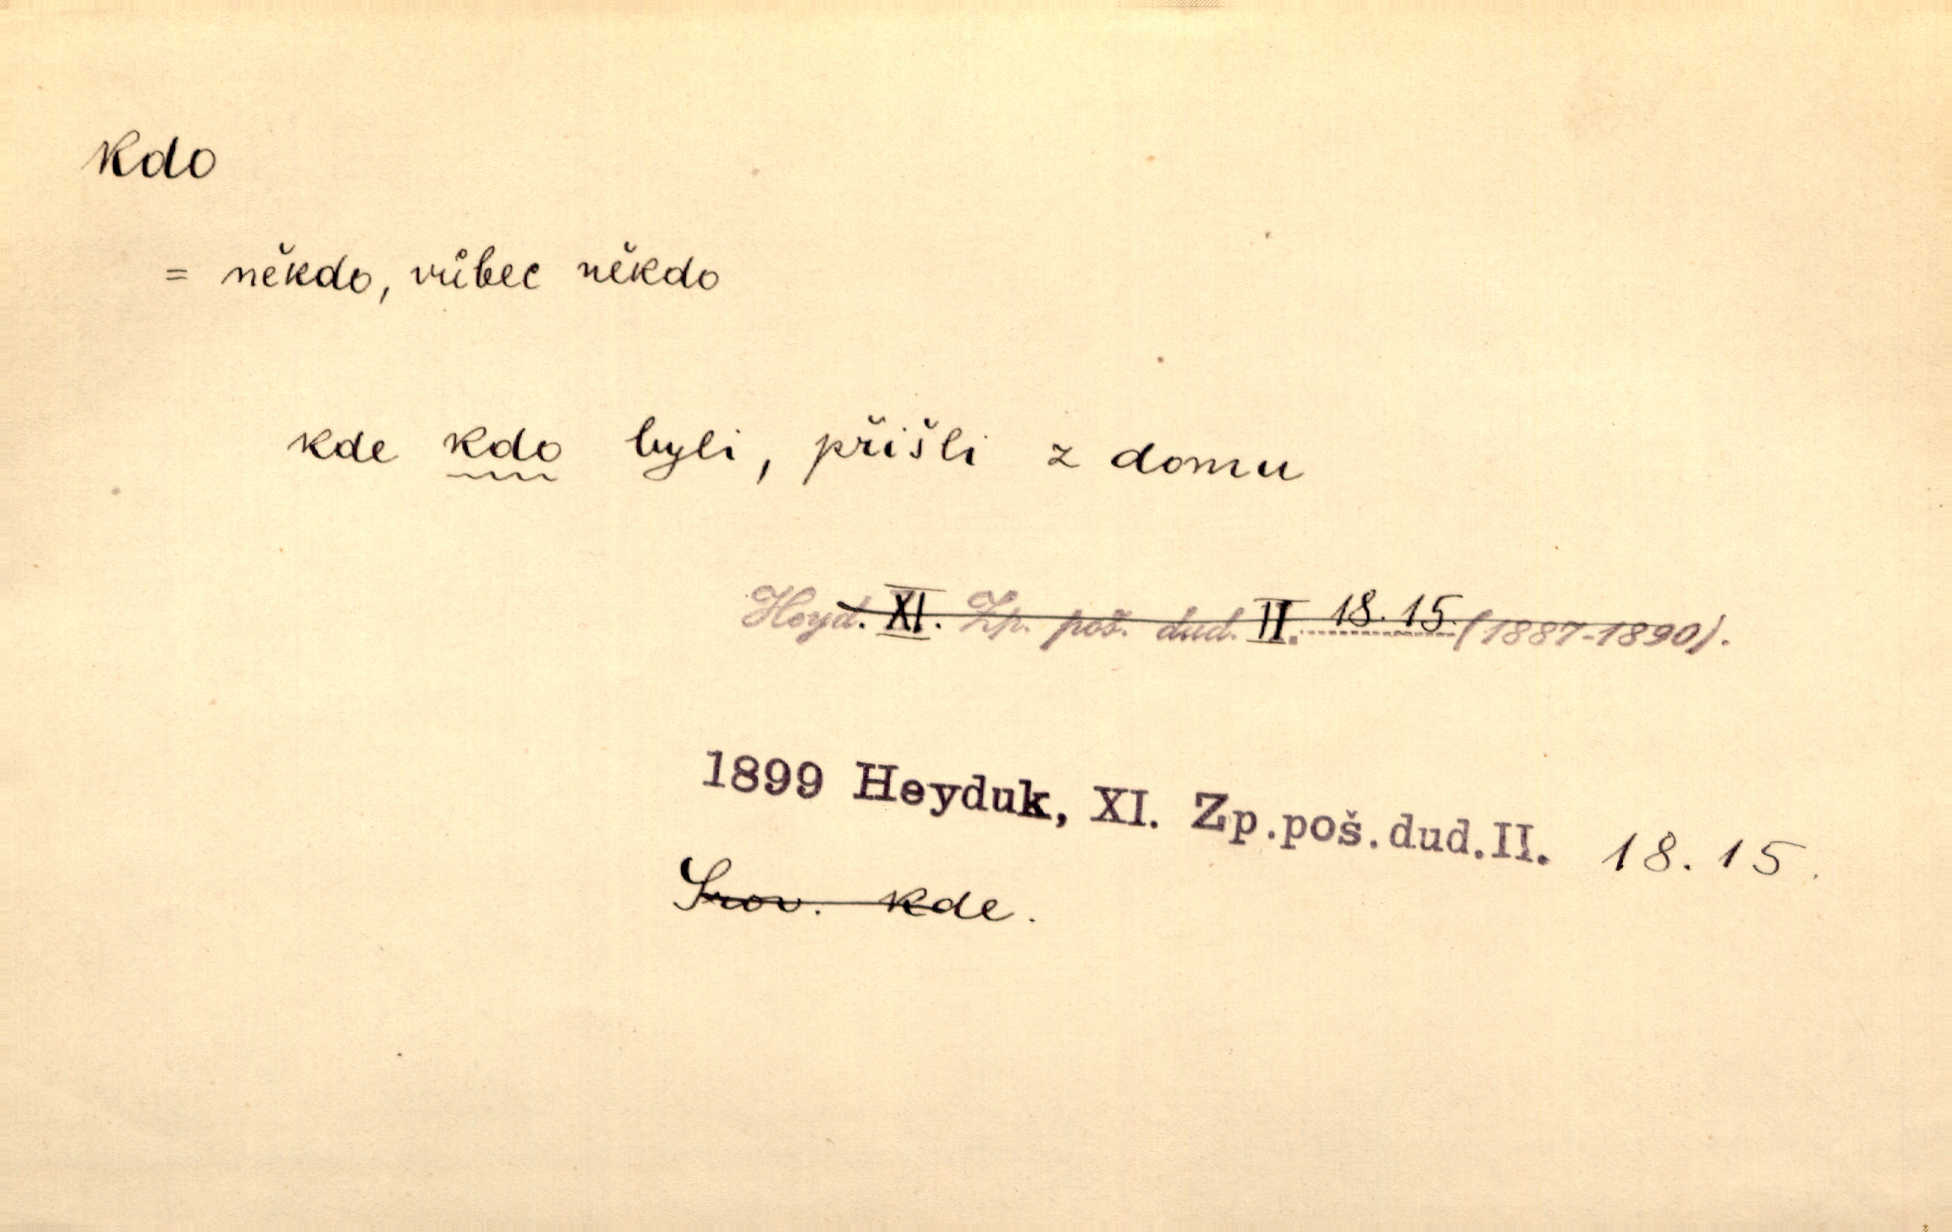 kdo
= někdo, vůbec někdo
kde kdo byli, přišli z domu
Heyd. XI. Zp. poš. dud. II. 18. 15. (1887-1890).
1899 Heyduk, XI. Zp.poš.dud.II. 18. 15.
Srov. kde.